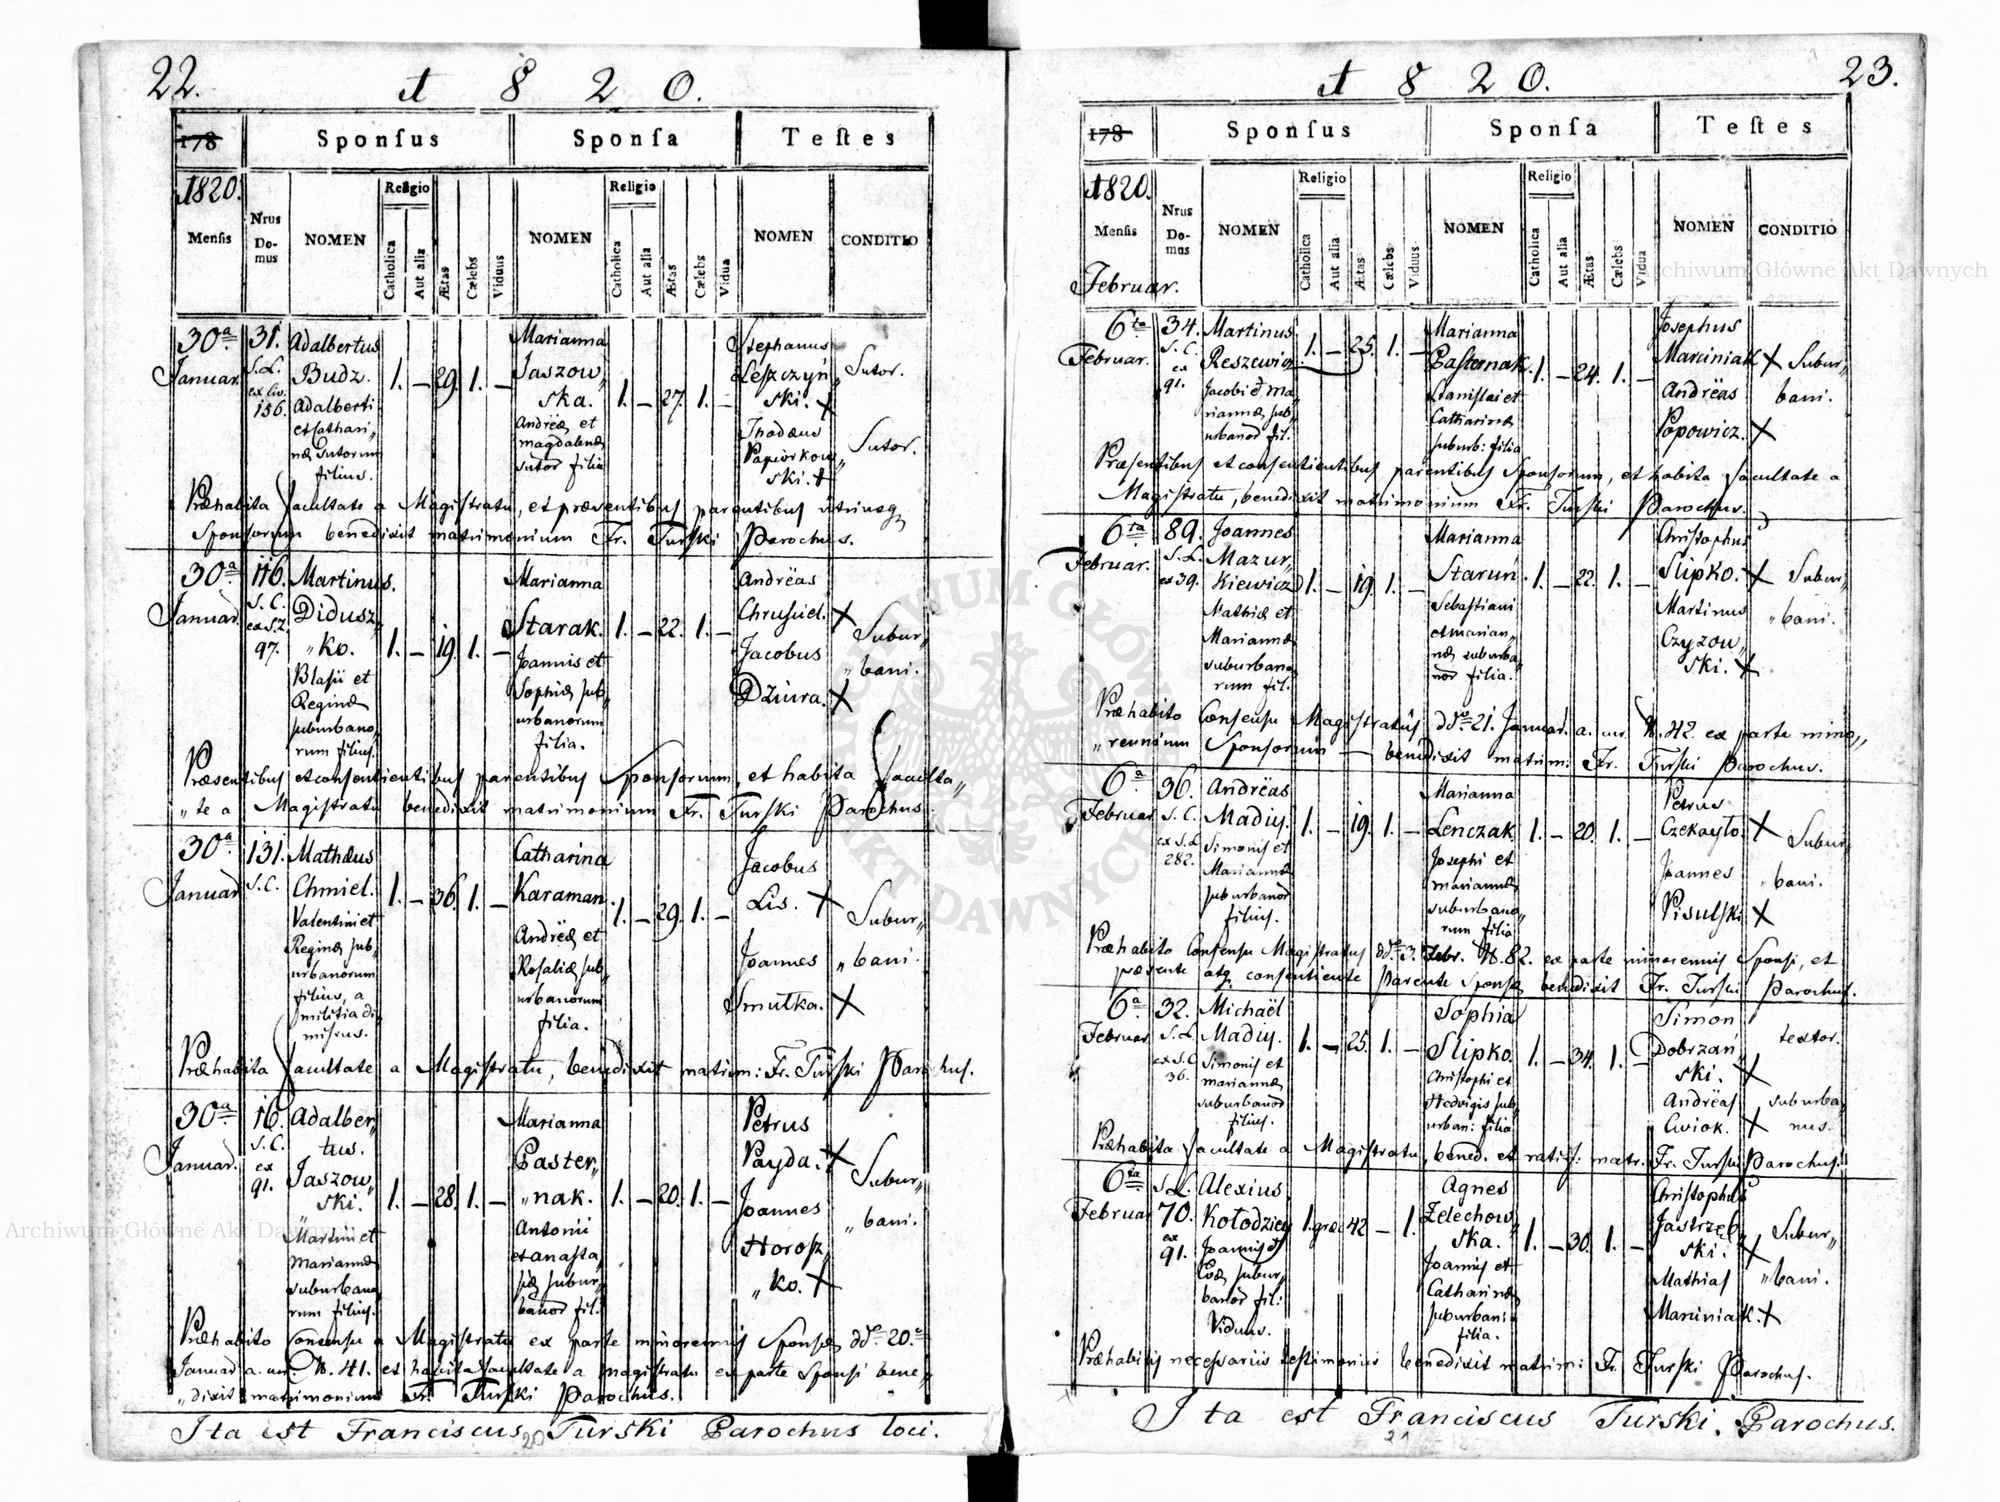 22.
1 8 2 0.
178
Sponſus
Sponſa
Teſtes
1820.
Menſis
Nrus Do-mus
NOMEN
Religio
Catholica
Aut alia
Ætas
Cælebs
Viduus
NOMEN
Religio
Catholica
Aut alia
Ætas
Cælebs
Vidua
NOMEN
CONDITIO
30ª Januar.
31. S.L. ex civ. 156.
Adalbertus
Budz.
Adalberti
et Cathari„
næ Sutorum
filius.
1. — 29. 1. —
Marianna
Jaszow„
ska.
Andreæ et
Magdalenæ
Sutor filia
1. — 27. 1. —
Stephanus
Leszczyń„
ski. +
Thadæus
Papiorkow„
ski. +
Sutor.
Sutor.
Præhabita facultate a Magistratu, et præsentibus parentibus utriusq
Sponsorum benedixit matrimonium Fr. Turski Parochus.
30ª Januar.
116. S.C. ex S.L. 97.
Martinus
Didusz„
„ko.
Blasii et
Reginæ
suburbano„
rum filius.
1. — 19. 1. —
Marianna
Starak.
Joannis et
Sophiæ sub„
urbanorum
filia.
1. — 22. 1. —
Andreas
Chrusciel. +
Jacobus
Dziura. +
Subur„
„bani.
Præsentibus et consentientibus parentibus Sponsorum, et habita faculta„
„te a Magistratu benedixit matrimonium Fr. Turski Parochus.
30ª Januar
131. S.C.
Mathæus
Chmiel.
Valentini et
Reginæ sub„
urbanorum
filius, a
militia di„
missus.
1. — 36. 1. —
Catharina
Karaman.
Andreæ et
Rosaliæ sub„
urbanorum
filia.
1. — 29. 1. —
Jacobus
Lis. +
Joannes
Smutka. +
Subur„
„bani.
Præhabita facultate a Magistratu, benedixit matrim: Fr. Turski Parochus.
30ª Januar.
16. S.C. ex 91.
Adalber„
tus.
Jaszow„
ski.
Martini et
Mariannæ
suburbano„
rum filius.
1. — 28. 1. —
Marianna
Paster„
„nak.
Antonii
et Anasta„
siæ subur„
banor fil:
1. — 20. 1. —
Petrus
Payda. +
Joannes
Horosz„
„ko. +
Subur„
„bani.
Præhabito Consensu a Magistratu ex parte minorennis Sponsæ ddº 20.ª
Januar a. cur. N. 41. et habita facultate a magistratu ex parte Sponsi bene„
„dixit matrimonium Fr. Turski Parochus.
Ita est Franciscus Turski Parochus loci.
20
23.
1 8 2 0.
178
Sponſus
Sponſa
Teſtes
1820.
Menſis
Februar.
Nrus Do-mus
NOMEN
Religio
Catholica
Aut alia
Ætas
Cælebs
Viduus
NOMEN
Religio
Catholica
Aut alia
Ætas
Cælebs
Vidua
NOMEN
CONDITIO
6ta Februar.
34. S.C. ex 91.
Martinus
Reszewicz
Jacobi et Ma„
riannæ sub„
urbanor fil.
1. — 25. 1. —
Marianna
Pasternak.
Stanislai et
Catharinæ
suburb: filia
1. — 24. 1. —
Josephus
Marciniak +
Andreas
Popowicz. +
Subur„
bani.
Præsentibus et consentientibus parentibus Sponsorum, et habita facultate a
Magistratu, benedixit matrimonium Fr. Turski Parochus.
6ta Februar.
89. S.L. ex 39.
Joannes
Mazur„
kiewicz
Mathiæ et
Mariannæ
suburbano„
rum fil.
1. — 19. 1. —
Marianna
Staruń.
Sebastiani
et Marian„
næ suburba„
nor filia.
1. — 22. 1. —
Christophus
Slipko. +
Martinus
Czyzow„
ski. +
Subur„
„bani.
Præhabito Consensu Magistratus ddº 21. Januar. a. cur. N. 42. ex parte mino„
„rennium Sponsorum — benedixit matrim: Fr. Turski Parochus.
6ª Februar
36. S.C. ex S.L. 282.
Andreas
Madiy.
Simonis et
Mariannæ
suburbanor
filius.
1. — 19. 1. —
Marianna
Lenczak
Josephi et
Mariannæ
suburbano„
rum filia
1. — 20. 1. —
Petrus
Czekayło. +
Joannes
Pisulski +
Subur„
„bani.
Præhabito Consensu Magistratus ddº 3. Febr. N. 82. ex parte minorennis Sponsi, et
præsente atq consentiente Parente Sponsæ benedixit Fr. Turski Parochus.
6ª Februar
32. S.L. ex S.C. 36.
Michaël
Madiy.
Simonis et
Mariannæ
suburbanor
filius.
1. — 25. 1. —
Sophia
Slipko.
Christophi et
Hedvigis sub„
urban: filia
1. — 34. 1. —
Simon
Dobrzań„
ski. +
Andreas
Cwiok. +
textor.
suburba„
nus.
Præhabita facultate a Magistratu, bened. et ratif: matr. Fr. Turski Parochus.
6ta Februar
S.L. 70. ex 91.
Alexius
Kołodziey
Joannis et
Evæ subur„
banor fil:
Viduus.
1. græc 42 — 1.
Agnes
Zelechow„
ska.
Joannis et
Catharinæ
suburbani
filia.
1. — 30. 1. —
Christophus
Jastrzęb„
ski. +
Mathias
Marciniak. +
Subur„
„bani.
Præhabitis necessariis testimoniis benedixit matrim: Fr. Turski Parochus.
Ita est Franciscus Turski. Parochus.
21
Archiwum Główne Akt Dawnych
Archiwum Główne Akt Dawnych
ARCHIWUM GŁÓWNE AKT DAWNYCH